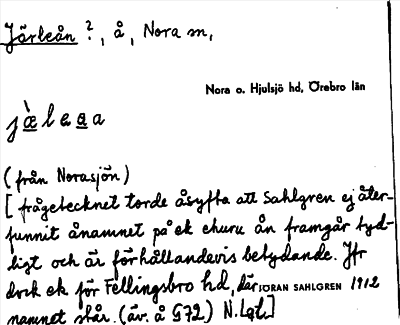 Järleån ?, å, Nora m,
Nora o. Hjulsjö hd, Örebro län
jæ̀leaa
(från Norasjön)
[ frågetecknet torde åsyfta att Sahlgren ej åter-
funnit ånamnet på ek ehuru ån framgår tyd-
ligt och är förhållandevis betydande. Jfr
dock ek för Fellingsbro hd, där JÖRAN SAHLGREN 1912
namnet står. (äv. å G72) N.Lgt.]